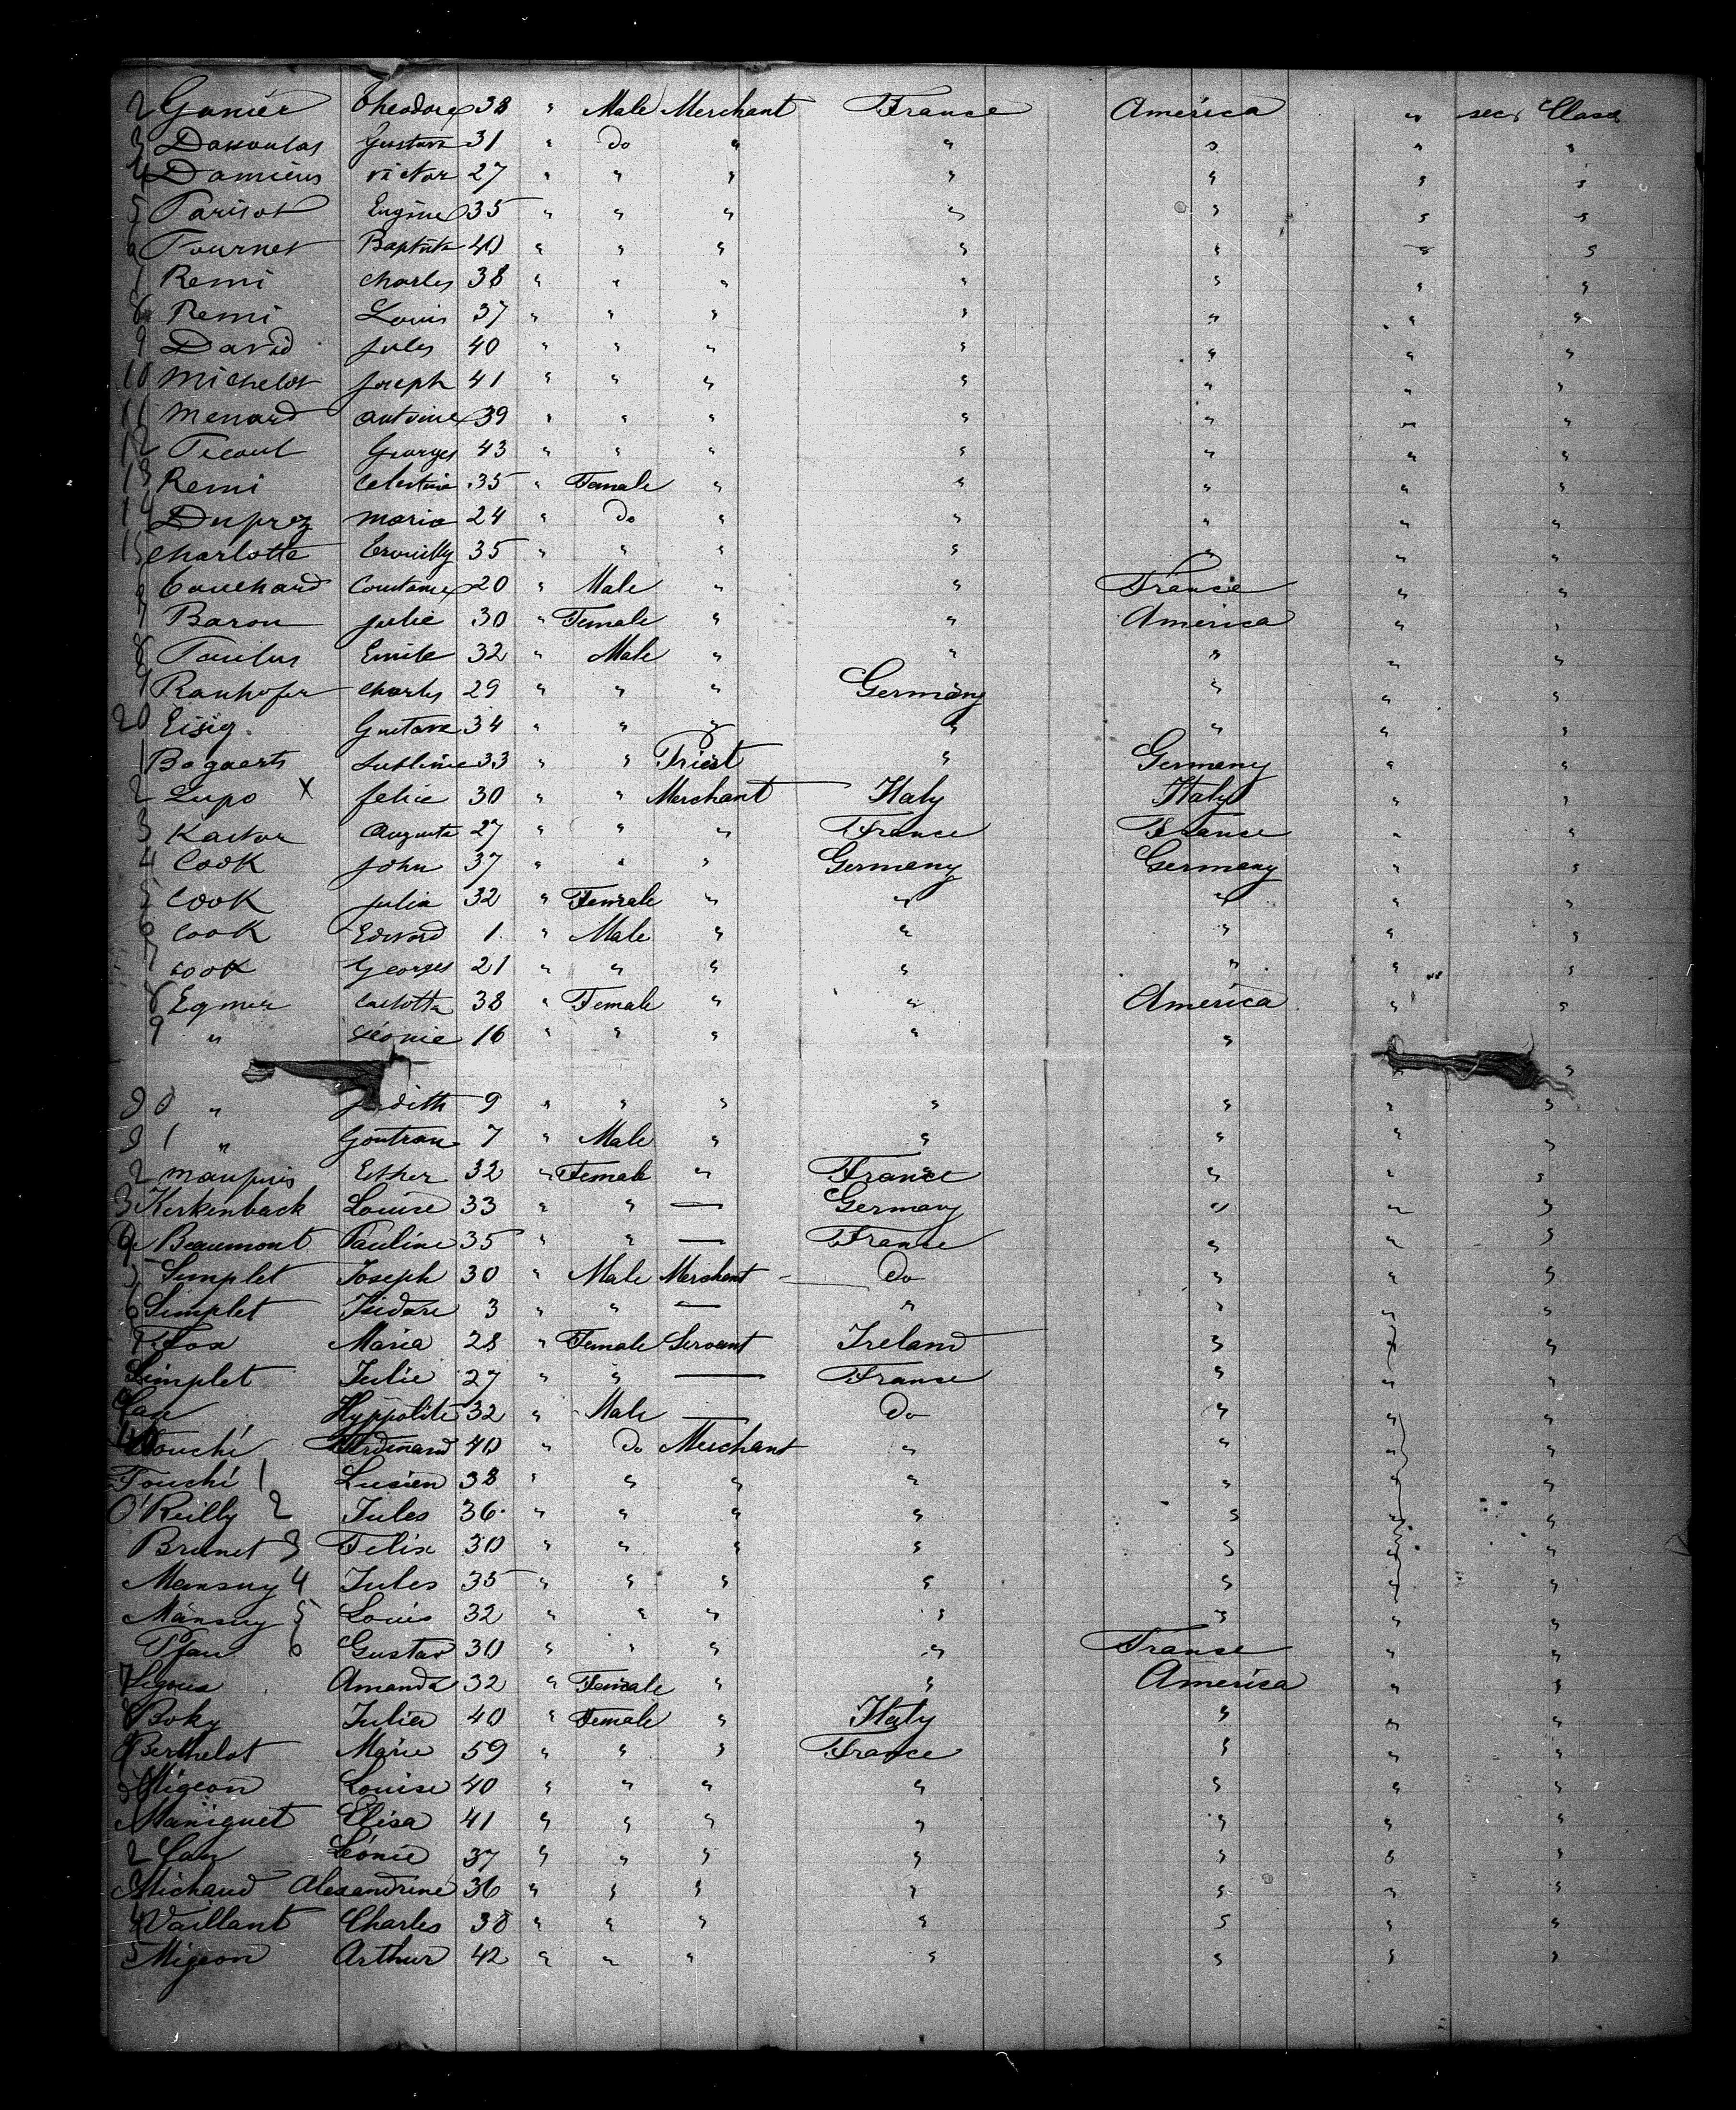 2 Ganier Theodore 38 " Male Merchant France America " sec. Class
3 Dassoulas Gustave 31 " do " " " " "
4 Damiens victor 27 " " " " " " "
5 Parisot Eugine 35 " " " " " " "
6 Fournet Baptiste 40 " " " " " " "
7 Remi charles 38 " " " " " " "
8 Remi Louis 37 " " " " " " "
9 David Jules 40 " " " " " " "
10 Michelot Joseph 41 " " " " " " "
11 Menard antoine 39 " " " " " " "
12 Georges 43 " " " " " " "
13 Remi Celestine 35 " Female " " " " "
14 Duprez maria 24 " do " " " " "
15 Charlotte 35 " " " " " " "
Couchard Constance 20 " Male " " France " "
7 Baron Julie 30 " Female " " America " "
8 Paulus Emile 32 " Male " " " " "
9 Ranhofer Charles 29 " " " Germany " " "
20 Eisig Gustave 34 " " " " " " "
1 Bogaerts 33 " " Priest " Germany " "
2 Lupo X felice 30 " " Merchant Italy Italy " "
3 Kastor Auguste 27 " " " France France " "
4 Cook John 37 " " " Germany Germany " "
5 Cook Julia 32 " Female " " " " "
6 Cook Edward 1 " Male " " " " "
7 Cook Georges 21 " " " " " " "
8 Egmer Carlotta 38 " Female " " America " "
9 " Léonie 16 " " " " " "
" "
30 " Judith 9 " " " " " " "
31 " Gontran 7 " Male " " " " "
2 Maupuis Esther 32 " Female " France " " "
3 Kerkenback Louise 33 " " — Germany " " "
4 Beaumont Pauline 35 " " — France " " "
5 Simplet Joseph 30 " Male Merchant Do " " "
6 Simplet Isidore 3 " " — " " " "
7 Fox Maria 28 " Female Servant Ireland " " "
Simplet Julie 27 " " — France " " "
9 Hyppolite 32 " Male — Do " " "
40 Touché Ferdinand 40 " Do Merchant " " " "
Touché 1 Lucien 38 " " " " " " "
O'Reilly 2 Jules 36 " " " " " " "
Brunet 3 Felix 30 " " " " " " "
Mansuy 4 Jules 35 " " " " " " "
Mansuy 5 Louis 32 " " " " " " "
Pfau 6 Gustav 30 " " " " France " "
7 Amanda 32 " Female " " America " "
8 Boky Julia 40 " Female " Italy " " "
9 Berthelot Marie 59 " " " France " " "
Migeon Louise 40 " " " " " " "
Maniguet Elisa 41 " " " " " " "
2 Léonie 37 " " " " " " "
3 Michaud Alexandrine 36 " " " " " " "
4 Vaillant Charles 38 " " " " " " "
5 Migeon Arthur 42 " " " " " " "